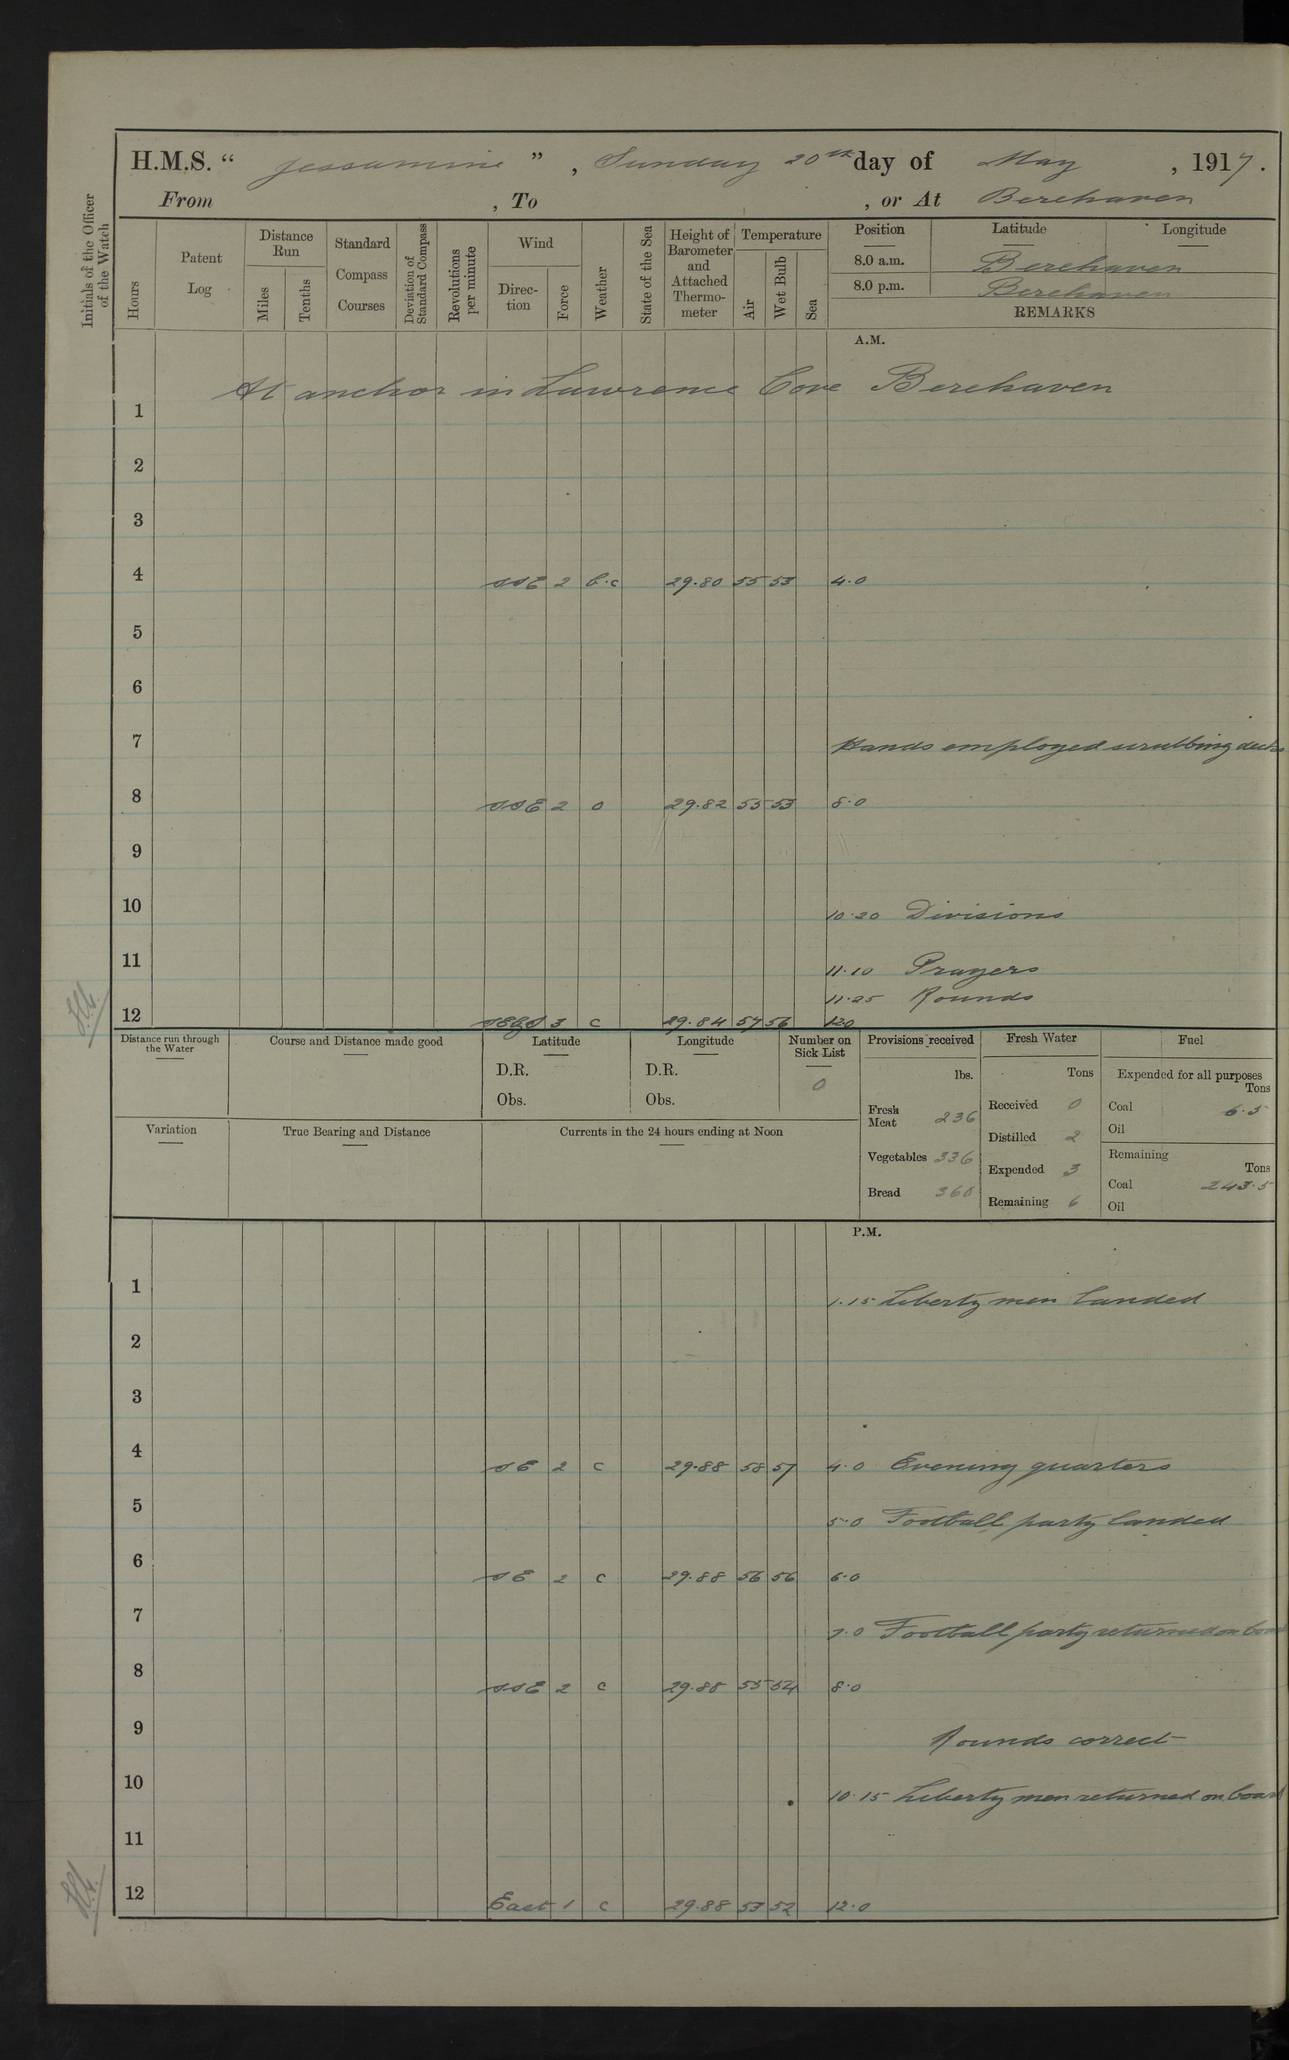 H.M.S. “ Jessamine ” , Sunday 20th day of May , 1917.
From , To , or At Berehaven
Initials of the Officer of the Watch
Hours
Patent Log
Distance Run
Miles
Tenths
Standard Compass Courses
Deviation of Standard Compass
Revolutions per minute
Wind
Direc-tion
Force
Weather
State of the Sea
Height of Barometer and Attached Thermo-meter
Temperature
Air
Wet Bulb
Sea
Position Latitude Longitude
8.0 a.m. Berehaven
8.0 p.m. Berehaven
REMARKS
A.M.
At anchor in Lawrence Cove Berehaven
1
2
3
4 SSE 2 b.c 29.80 55 53 4.0
5
6
7 Hands employed scrubbing decks
8 SSE 2 o 29.82 55 53 8.0
9
10 10.20 Divisions
11 11.10 Prayers
11.25 Rounds
12 SEbyS 3 c 29.84 57 56 120
Distance run through the Water
Course and Distance made good
Latitude
D.R.
Obs.
Longitude
D.R.
Obs.
Number on Sick List
0
Variation
True Bearing and Distance
Currents in the 24 hours ending at Noon
Provisions received
lbs.
Fresh Meat 236
Vegetables 336
Bread 360
Fresh Water
Tons
Received 0
Distilled 2
Expended 3
Remaining 6
Fuel
Expended for all purposes
Tons
Coal 6.5
Oil
Remaining
Tons
Coal 243.5
Oil
P.M.
1 1.15 Liberty men landed
2
3
4 SE 2 c 29.88 58 57 4.0 Evening quarters
5 5.0 Football party landed
6 SE 2 c 29.88 56 56 6.0
7 7.0 Football party returned on board
8 SSE 2 c 29.88 55 54 8.0
9 Rounds correct
10 10.15 Liberty men returned on board
11
12 East 1 c 29.88 53 52 12.0